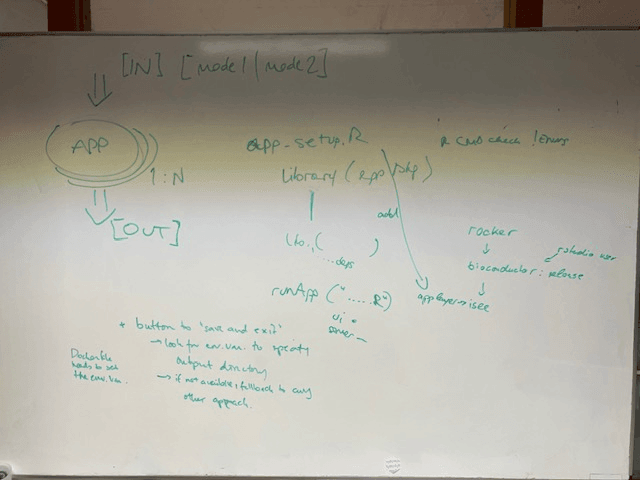 [IN] [mode1/mode2]
APP
1:N
[OUT]
app-setup.R
library(app/pkg)
add
(
)
...deps
runApp(".....R")
ui
server
R CMD check !Errors
rocker
rstudio user
bioconductor: release
* button to 'save and exit'
→ look for env.var. to specify
output directory
→ if not available, fallback to any
other approach.
Dockerfile
needs to set
the env.var.